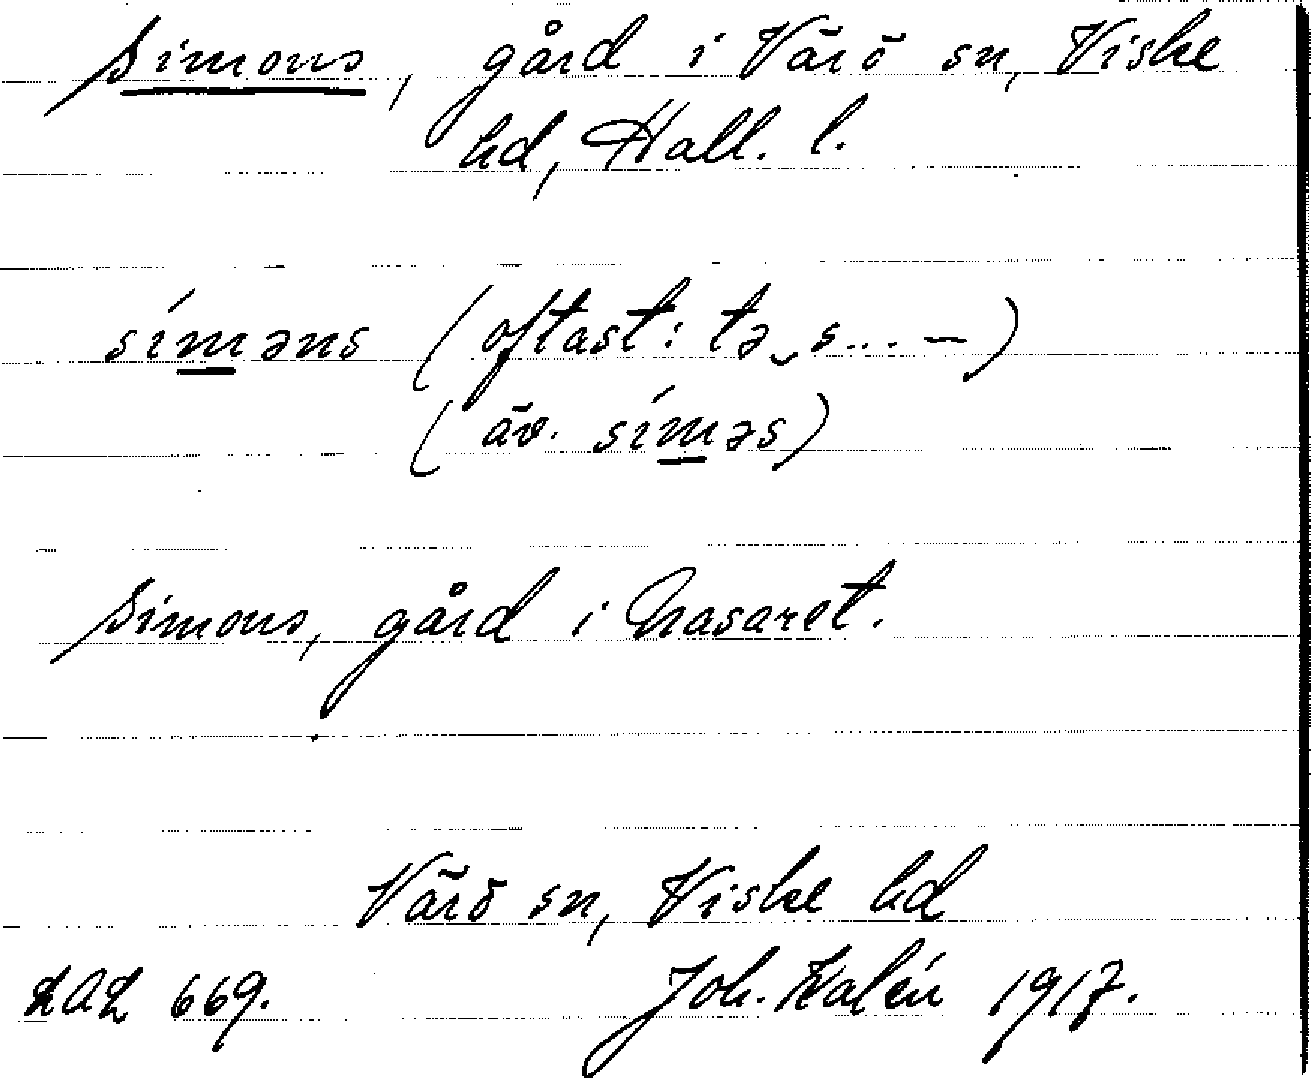 Simons, gård i Värö sn, Viske
hd, Hall. l.
síməns (oftast: tə‿s... –)
(äv. síməs)
Simons, gård i Nasaret.
Värö sn, Viske hd
LAL 669. Joh. Kalén 1917.